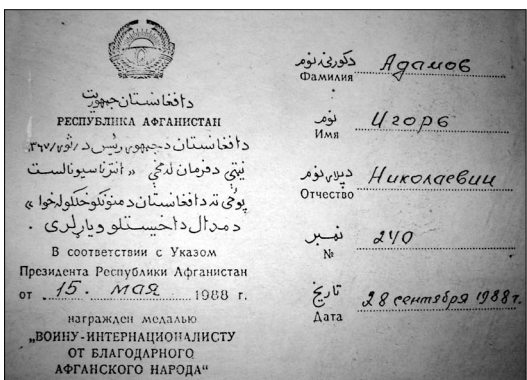 دافغانستان جمهوریت
РЕСПУБЛИКА АФГАНИСТАН
دافغانستان دجمهوری رئیس د
نیټی دفرمان له مخې « انترناسیونالست
پوځی ته دافغانستان د
دمدال داخیستلو ویاړلری .
В соответствии с Указом
Президента Республики Афганистан
от 15. мая 1988 г.
награжден медалью
„ВОИНУ-ИНТЕРНАЦИОНАЛИСТУ
ОТ БЛАГОДАРНОГО
АФГАНСКОГО НАРОДА“
دکورنی نوم
Фамилия Адамов
نوم
Имя Игорь
دپلار نوم
Отчество Николаевич
نمبر
№ 240
تاریخ
Дата 28 сентября 1988 г.